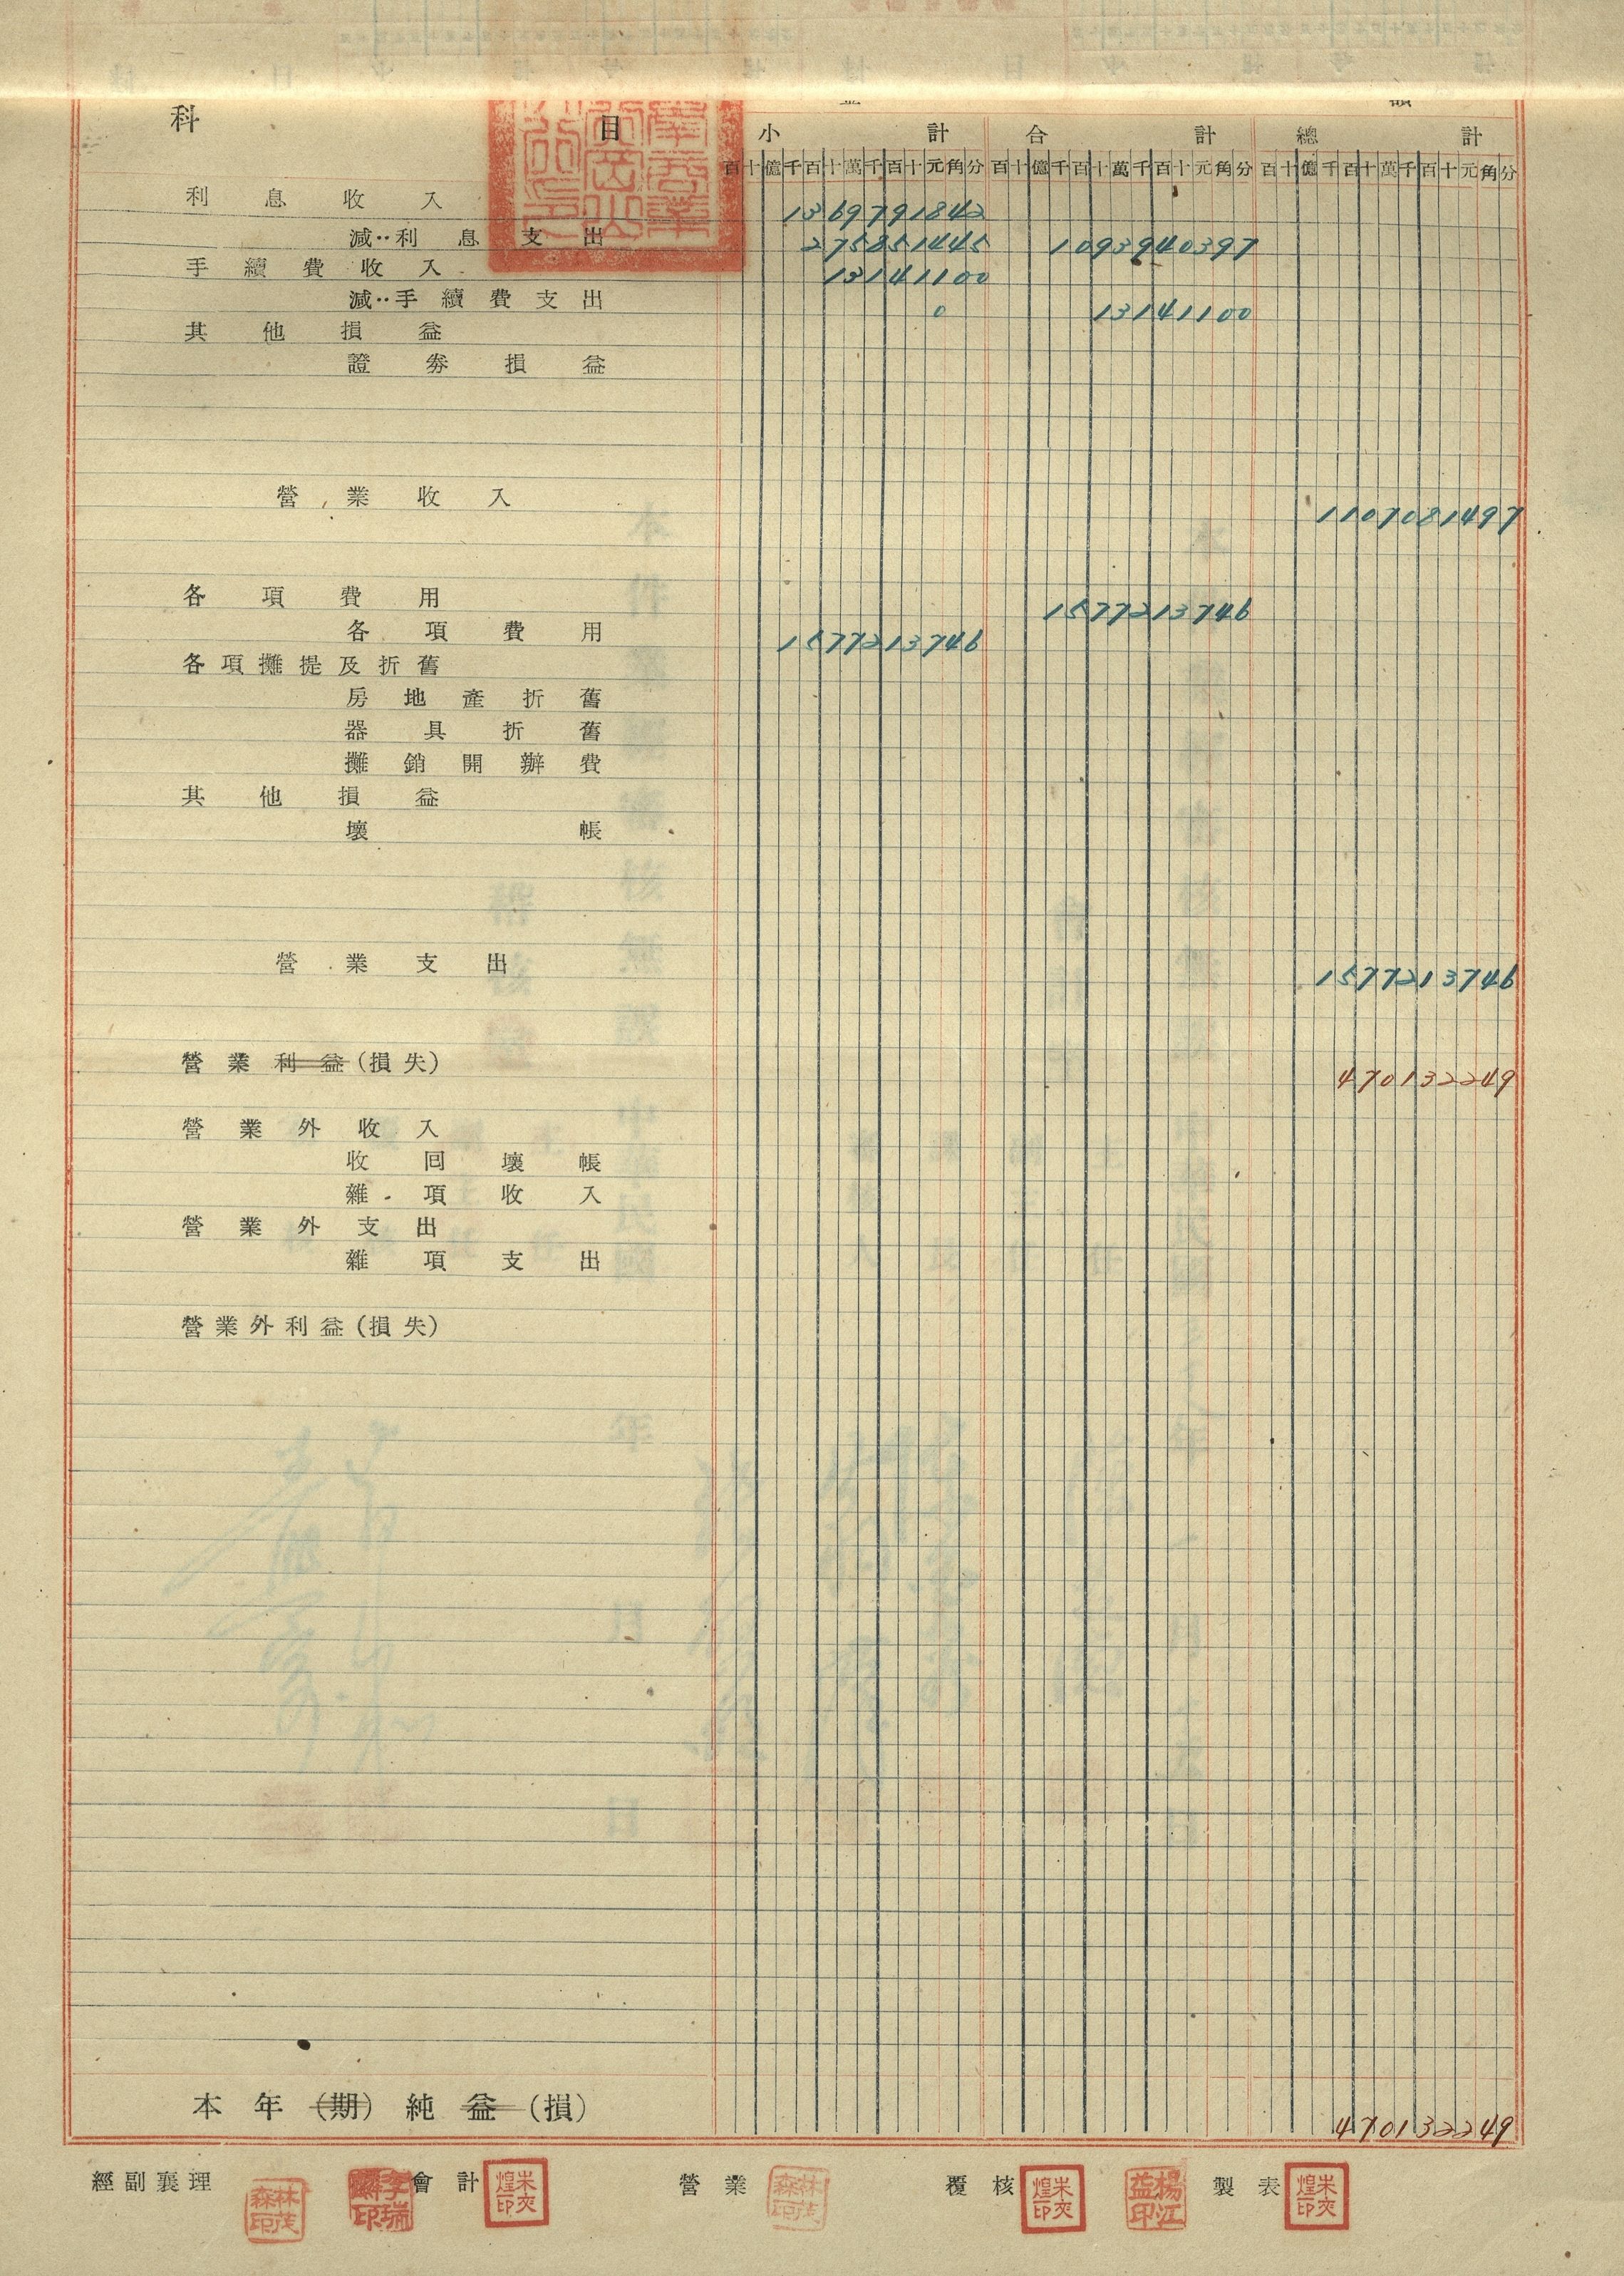 科 目 小 計 合 計 總 計
百十億千百十萬千百十元角分 百十億千百十萬千百十元角分 百十億千百十萬千百十元角分
利息收入 1369791842
減:利息支出 275851445 1093940397
手續費收入 13141100
減:手續費支出 0 13141100
其他損益
證券損益
營業收入 1107081497
各項費用 1577213746
各項費用 1577213746
各項攤提及折舊
房地產折舊
器具折舊
攤銷開辦費
其他損益
壞帳
營業支出 1577213746
營業利益(損失) 470132249
營業外收入
收回壞帳
雜項收入
營業外支出
雜項支出
營業外利益(損失)
本年(期)純益(損) 470132249
經副襄理 林茂森印 會計 營業 林茂森印 覆核 楊江益印 製表